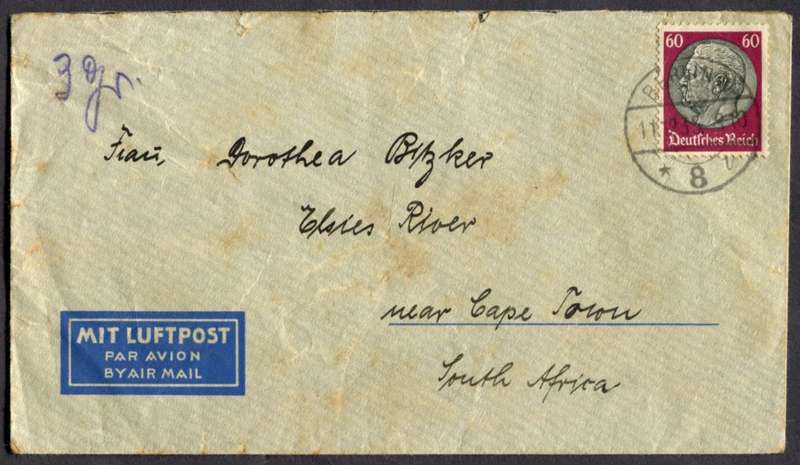 3 gr.
60 60
Deutsches Reich
BERLIN
* 8
Frau, Dorothea Bitzker
Elsies River
near Cape Town
South Africa
MIT LUFTPOST
PAR AVION
BY AIR MAIL